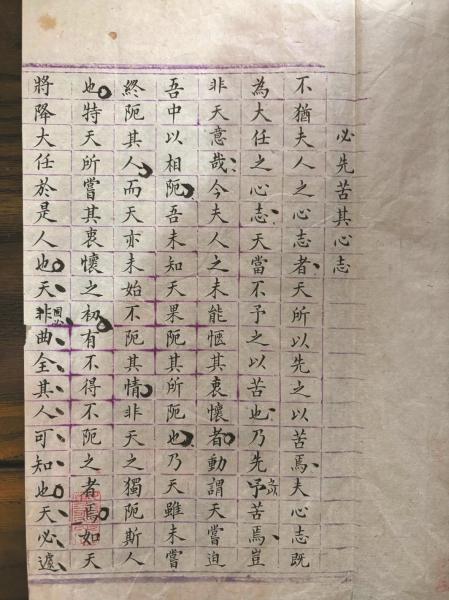 必先苦其心志
不猶夫人之心志者天所以先之以苦焉夫心志既
為大任之心志天當不予之以苦也乃先予以苦焉豈
非天意哉今夫人之未能愜其衷懷者動謂天嘗迫
吾中以相阨吾未知天果阨其所阨也乃天雖未嘗
終阨其人而天亦未始不阨其情非天之獨阨斯人
也特天所嘗其衷懷之初有不得不阨之者焉如天
將降大任於是人也天非固必曲全其人可知也天必遽